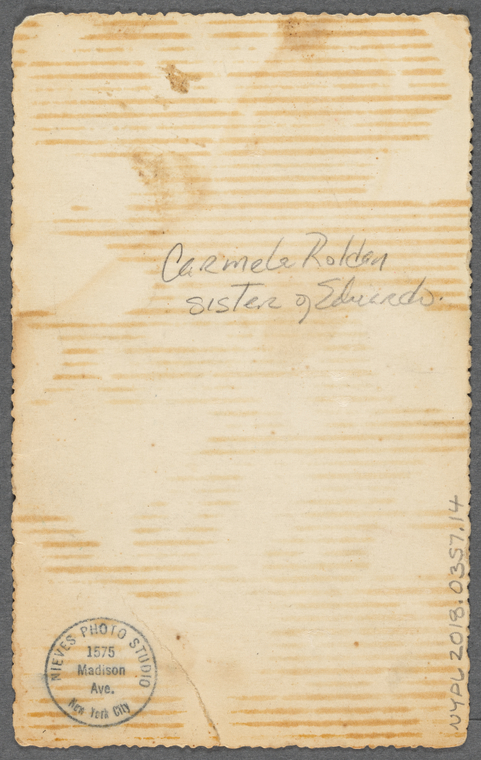 Carmela Roldan
sister of Eduardo.
NIEVES PHOTO STUDIO
1575
Madison
Ave.
New York City
NYPL 2018.0357.14